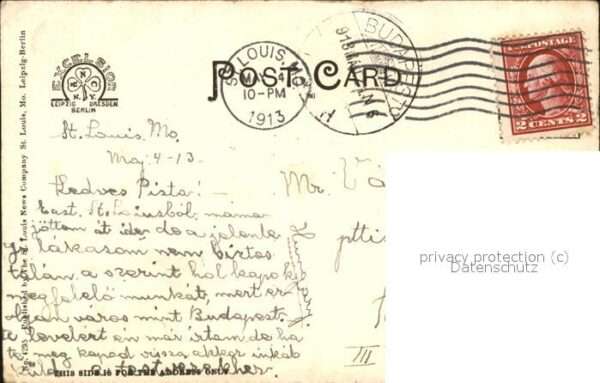 POST CARD
ST. LOUIS, MO.
MAY 4
10-PM
1913
BUDAPEST
913 MAJ
U.S. POSTAGE
2 CENTS 2
EXCELSIOR
LEIPZIG DRESDEN
BERLIN
No. 1295 Published by the St. Louis News Company St. Louis, Mo. Leipzig-Berlin
St. Louis Mo.
Maj 4-13.
Kedves Pista! —
Mr.
East. St. Louisból, mama
jöttem át ide de a jelenle
lakásom nem biztos
talán a szerint hol kapok
megfelelő munkát, mert
olyan város mint Budapest.
levelert én már írtam de ha
meg kapod vissza inkáb
küld
Hungary
III
THIS SIDE IS FOR THE ADDRESS ONLY
privacy protection (c)
Datenschutz